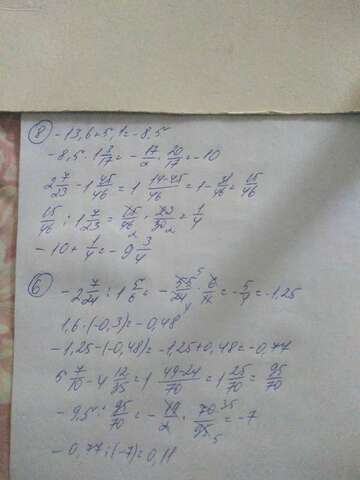 ⑧ -13,6+5,1=-8,5
-8,5·1 3/17=-17/2·20/17=-10
2 7/23-1 45/46=1 14-45/46=1-31/46=15/46
15/46:1 7/23=15/46·23/30=1/4
-10+1/4=-9 3/4
⑥ -2 7/24:1 5/6=-55/24·6/11=-5/4=-1,25
1,6·(-0,3)=-0,48
-1,25-(-0,48)=-1,25+0,48=-0,77
5 7/10-4 12/35=1 49-24/70=1 25/70=95/70
-9,5:95/70=-19/2·70/95=-7
-0,77:(-7)=0,11